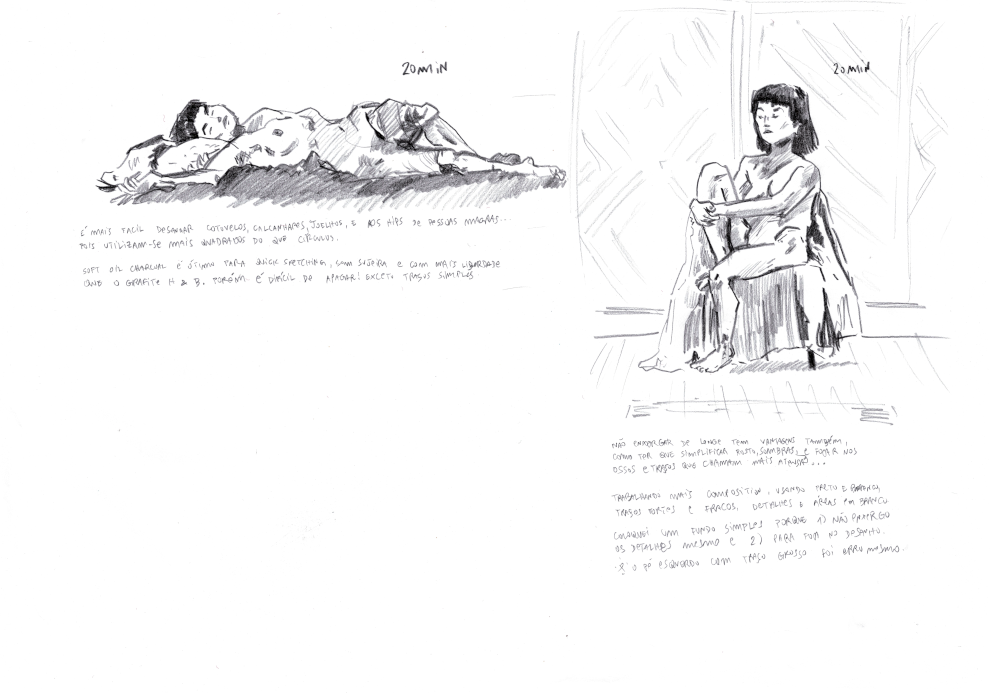 20MIN
É MAIS FACIL DESENHAR COTOVELOS, CALCANHARES, JOELHOS, E AOS HIPS DE PESSOAS MAGRAS...
POIS UTILIZAM-SE MAIS QUADRADOS DO QUE CIRCULOS.
SOFT OIL CHARCOAL É ÓTIMO PARA QUICK SKETCHING, SEM SUJEIRA E COM MAIS LIBERDADE
QUE O GRAFITE H & B. PORÉM É DIFÍCIL DE APAGAR! EXCETO TRAÇOS SIMPLES
20MIN
NÃO ENXERGAR DE LONGE TEM VANTAGENS TAMBÉM,
COMO TER QUE SIMPLIFICAR ROSTO, SOMBRAS, E FOCAR NOS
OSSOS E TRAÇOS QUE CHAMAM MAIS ATENÇÃO...
TRABALHANDO MAIS COMPOSITION, USANDO PRETO E BRANCO,
TRAÇOS FORTES E FRACOS, DETALHES & ÁREAS EM BRANCO
COLOQUEI UM FUNDO SIMPLES PORQUE 1) NÃO ENXERGO
OS DETALHES MESMO E 2) PARA FOCAR NO DESENHO.
O PÉ ESQUERDO COM TRAÇO GROSSO FOI ERRO MESMO.